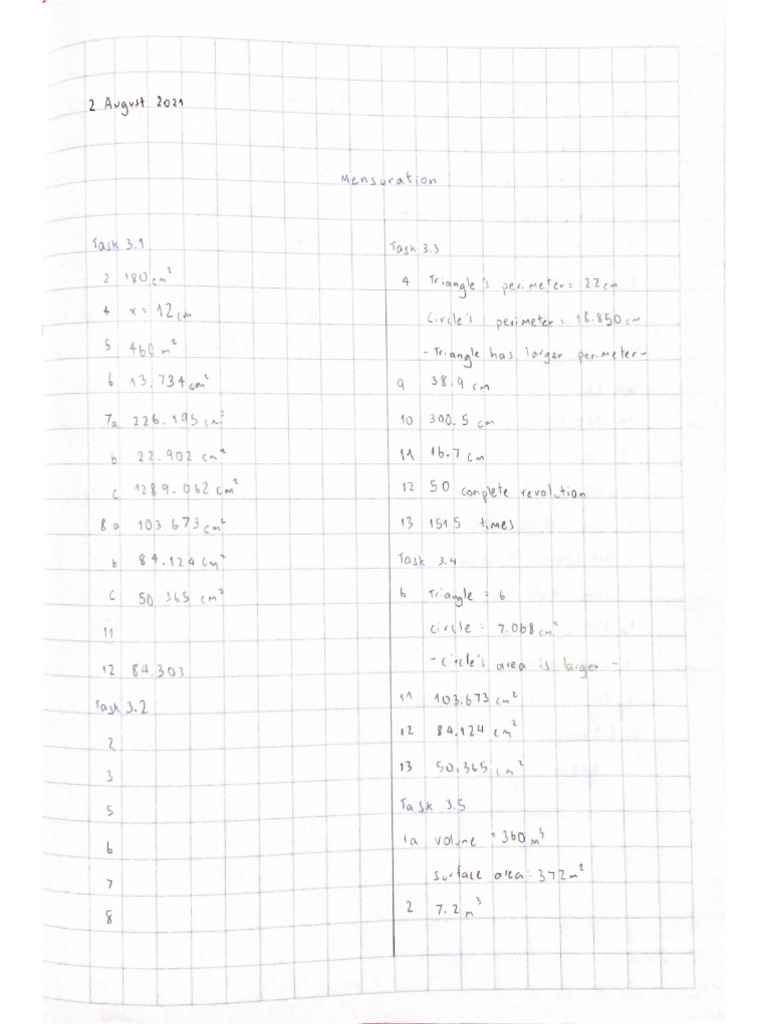 2 August 2021
Mensuration
Task 3.1
2 180 cm²
4 x = 12 cm
5 460 m²
6 13.734 cm²
7a 226.195 cm²
b 22.902 cm²
c 1289.062 cm²
8a 103.673 cm²
b 84.124 cm²
c 50.365 cm²
11
12 84.303
Task 3.2
2
3
5
6
7
8
Task 3.3
4 Triangle's perimeter = 22 cm
Circle's perimeter = 18.850 cm
- Triangle has larger perimeter -
9 38.9 cm
10 300.5 cm
11 16.7 cm
12 50 complete revolution
13 1515 times
Task 3.4
6 Triangle = 6
circle = 7.068 cm²
- circle's area is larger -
11 103.673 cm²
12 84.124 cm²
13 50.365 cm²
Task 3.5
1a volume = 360 m³
surface area: 372 m²
2 7.2 m³